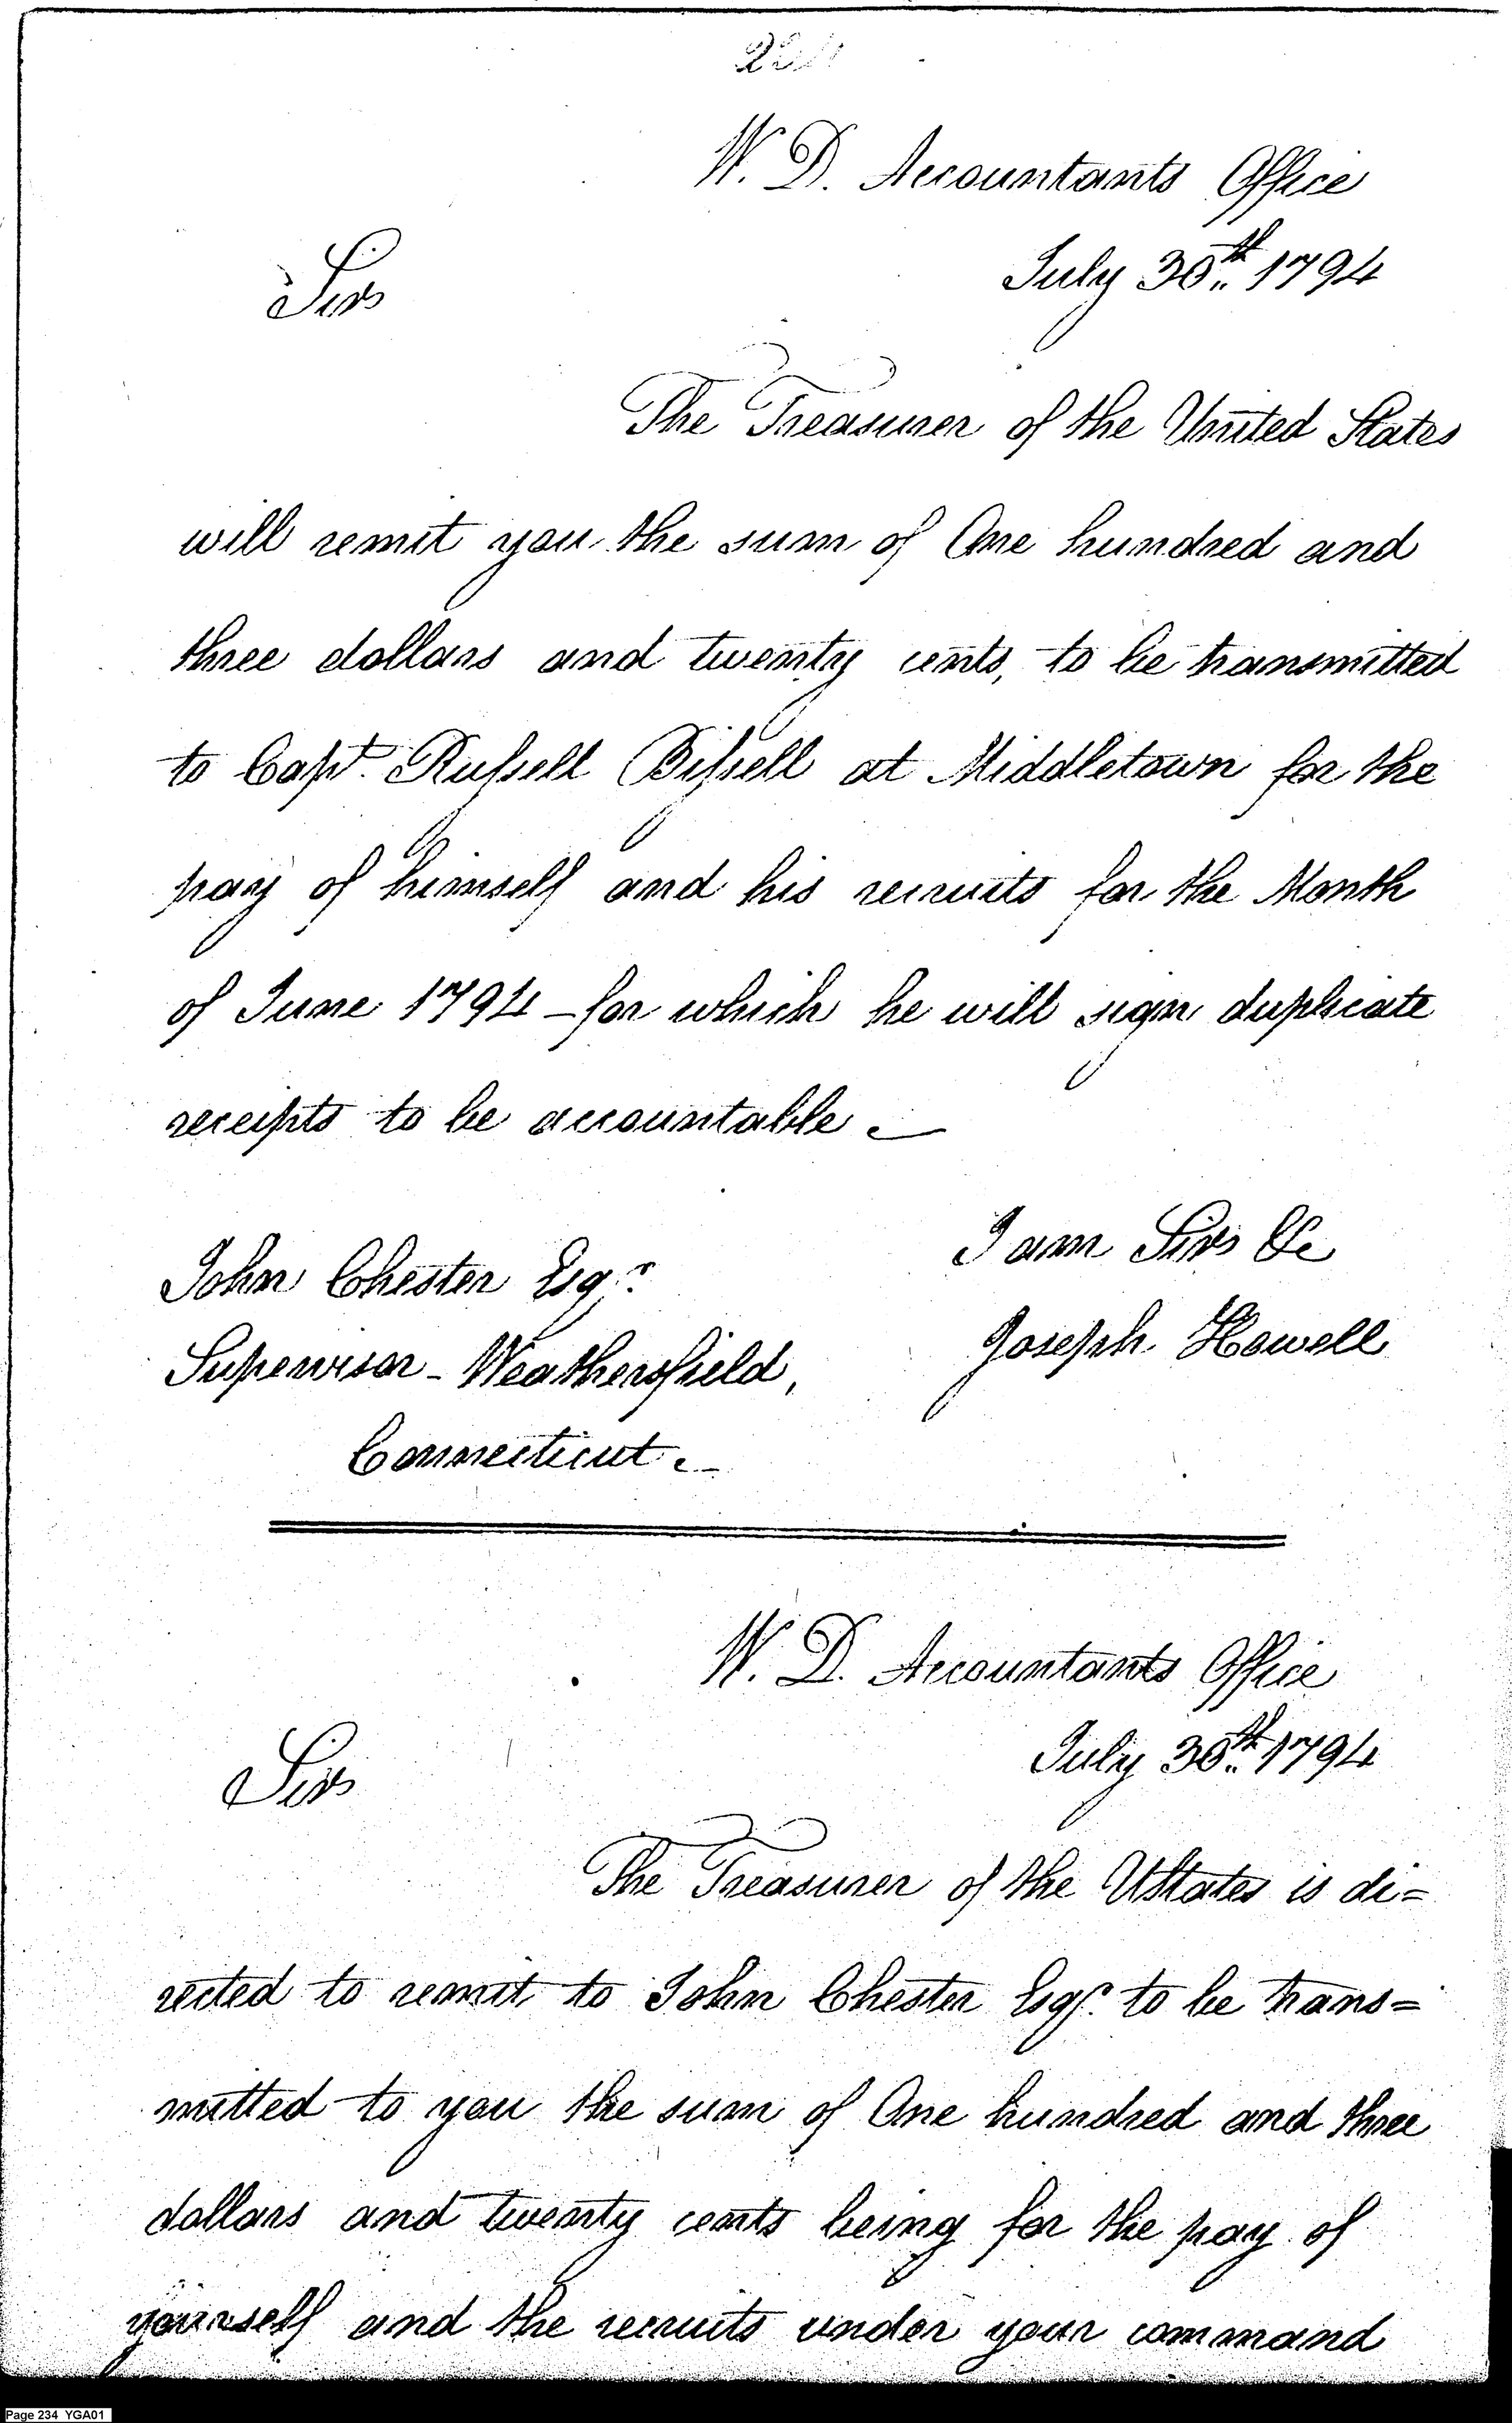 W. D. Accountants Office
July 30th 1794
Sir
The Treasurer of the United States
will remit you the sum of One hundred and
three dollars and twenty cents, to be transmitted
to Capt. Russell Bissell at Middletown for the
pay of himself and his recruits for the Month
of June 1794 - for which he will sign duplicate
receipts to be accountable.
I am Sir &c
Joseph Howell
John Chester Esqr.
Supervisor - Weathersfield,
Connecticut.
W. D. Accountants Office
July 30th 1794
Sir
The Treasurer of the UStates is di=
rected to remit to John Chester Esqr. to be trans=
mitted to you the sum of One hundred and three
dollars and twenty cents being for the pay of
yourself and the recruits under your command
Page 234 YGA01